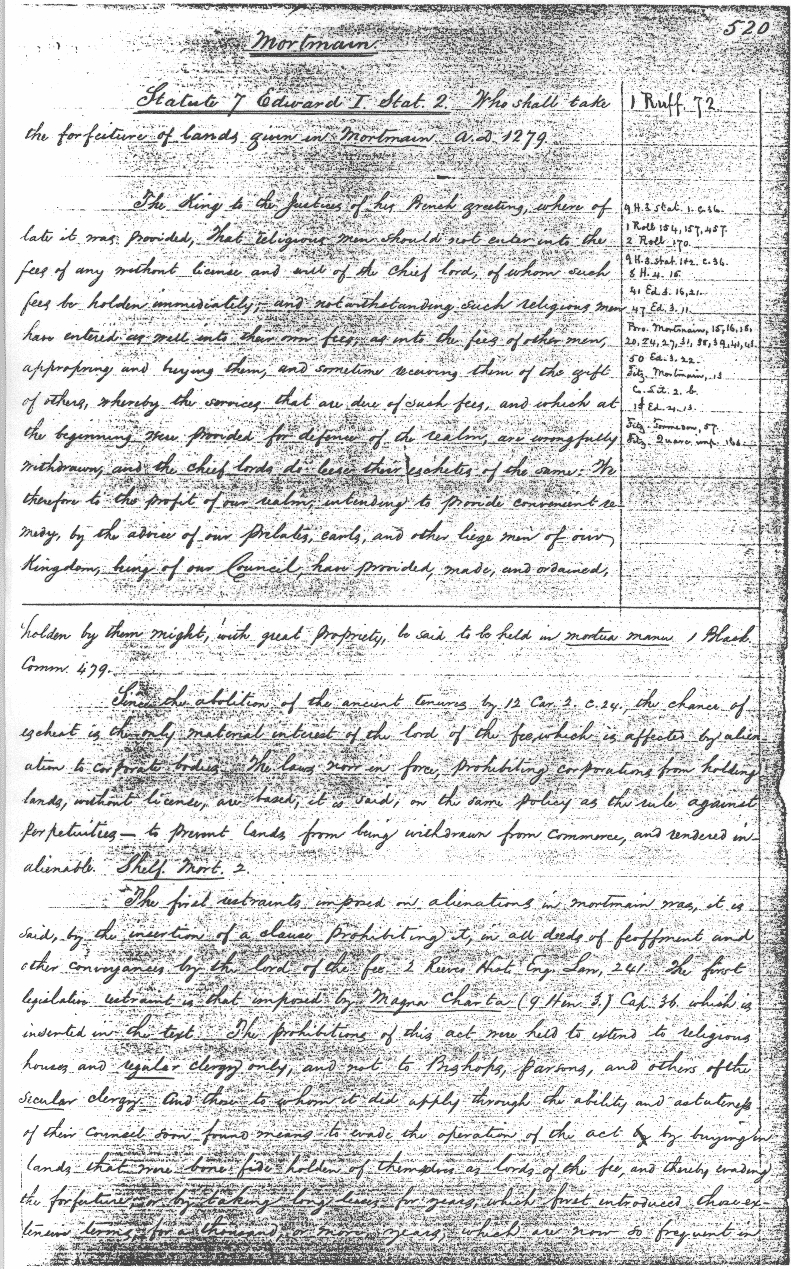 520
Mortmain.
Statute 7 Edward I. Stat. 2. Who shall take
the forfeiture of lands given in Mortmain. A.D. 1279.
1 Ruff. 72.
The King to the Justices of his Bench greeting, where of
late it was provided, That religious men should not enter into the
fees of any without license and will of the chief lord, of whom such
fees be holden immediately; and notwithstanding such religious men
have entered as well into their own fees, as into the fees of other men,
appropring and buying them, and sometime receiving them of the gift
of others, whereby the services that are due of such fees, and which at
the beginning were provided for defence of the realm, are wrongfully
withdrawn, and the chief lords do leese their eschetes of the same: We
therefore to the profit of our realm, intending to provide convenient re-
medy, by the advice of our Prelates, earls, and other liege men of our
Kingdom, being of our Council, have provided, made, and ordained,
9 H. 3. Stat. 1. c. 36.
1 Roll 154, 157, 457.
2 Roll. 170.
9 H. 3. Stat. 1&2. c. 36.
8 H. 4. 15.
41 Ed. 3. 16, 21.
47 Ed. 3. 11.
Bro. Mortmain, 15, 16, 18,
20, 24, 27, 31, 38, 39, 41, 43.
50 Ed. 3. 22.
Fitz. Mortmain, 13
Co. Lit. 2. b.
Fitz. Quare. imp.
holden by them might, with great propriety, be said to be held in mortua manu. 1 Black.
Comm. 479.
Since the abolition of the ancient tenures by 12 Car. 2. c. 24., the chance of
escheat is the only material interest of the lord of the fee, which is affected by alien
ation to corporate bodies. The laws now in force, prohibiting corporations from holding
lands, without license, are based, it is said, on the same policy as the rule against
perpetuities — to prevent lands from being withdrawn from commerce, and rendered in-
alienable. Shelf. Mort. 2.
The first restraints imposed on alienations in mortmain was, it is
said, by the insertion of a clause prohibiting it, in all deeds of feoffment and
other conveyances by the lord of the fee. 2 Reeves Hist. Eng. Law, 241. The first
legislative restraint is that imposed by Magna Charta (9 Hen. 3.) Cap. 36. which is
inserted in the text. The prohibitions of this act were held to extend to religious
houses and regular clergy only, and not to Bishops, parsons, and others of the
secular clergy. And those to whom it did apply through the ability and astuteness
of their Counsel soon found means to evade the operation of the act by buying in
lands that were bona fide holden of themselves as lords of the fee, and thereby evading
the forfeiture; or by taking long leases for years, which first introduced those ex-
tensive terms, for a thousand, or more, years, which are now so frequent in